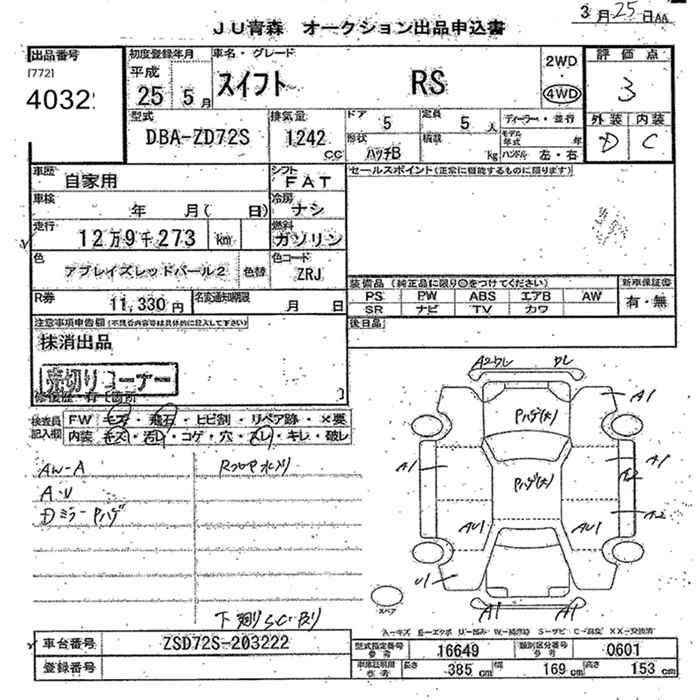 3月25日
JU青森 オークション出品申込書
出品番号
[772]
4032
初度登録年月
平成
25 5月
車名・グレード
スイフト RS
2WD
4WD
評価点
3
外装 内装
D C
型式
DBA-ZD72S
排気量
1242
CC
ドア 5
定員 5 人
形状 ハッチB
積載 kg
ディーラー・並行
モデル年式 年
ハンドル 左・右
車歴
自家用
シフト
FAT
車検
年 月( 日)
冷房
ナシ
走行
12万9千273 km
燃料
ガソリン
色
アブレイズレッドパール2
色替
色コード
ZRJ
R券
11,330円
名変通知期限
月 日
セールスポイント(正常に機能するものに限ります)
装備品(純正品に限り○をつけてください)
PS PW ABS エアB AW
SR ナビ TV カワ
新車保証書
有・無
後日品
注意事項申告欄(不具合内容等は具体的に記入して下さい)
抹消出品
売切りコーナー
修復歴・有( )箇所
検査員
記入欄
FW キズ・飛石・ヒビ割・リペア跡・×要
内装 キズ・汚レ・コゲ・穴・スレ・キレ・破レ
AW-A
A・U
Dミラー Pハゲ
下廻りSC・曲り
Pハゲ(大)
Pハゲ(大)
A1
A1
A1
A2
A2
AU1
AU1
U1
A1
A1
スペア
A…キズ E…エクボ U…凹み W…補修跡 S…サビ C…腐食 XX…交換済
車台番号
ZSD72S-203222
登録番号
型式指定番号
参考
16649
類別区分番号
参考
0601
車庫証明用
参考
長さ 385 cm
幅 169 cm
高さ 153 cm